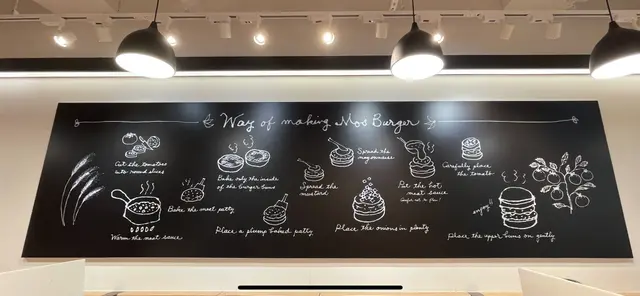 Way of making Mos Burger
Cut the tomatoes
into round slices
Warm the meat sauce
Bake the meat patty
Bake only the inside
of the burger buns
Place a plump baked patty
Spread the
mustard
Spread the
mayonnaise
Place the onions in plenty
Put the hot
meat sauce
Careful not to
Carefully place
the tomato
enjoy!!
Place the upper buns on gently